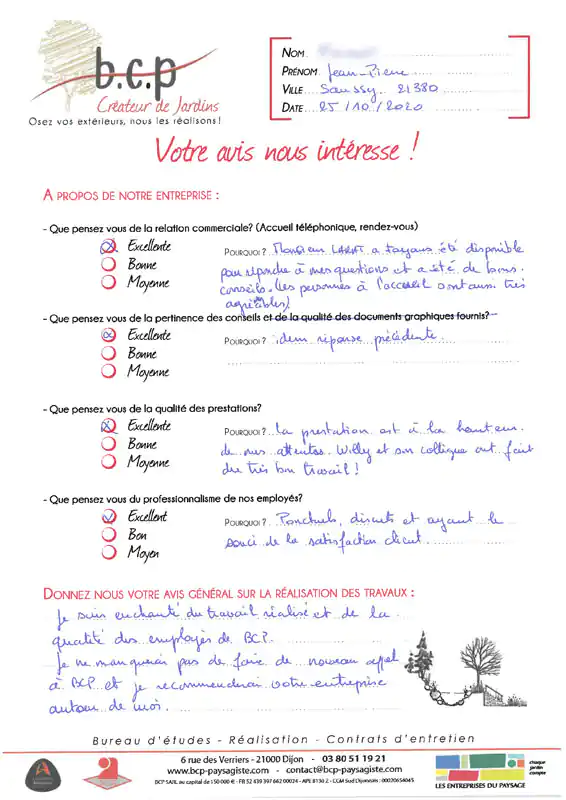 b.c.p
Créateur de Jardins
Osez vos extérieurs, nous les réalisons !
NOM
PRÉNOM Jean-Pierre
VILLE Saussy 21380
DATE 25/10/2020
Votre avis nous intéresse !
A PROPOS DE NOTRE ENTREPRISE :
- Que pensez vous de la relation commerciale? (Accueil téléphonique, rendez-vous)
Excellente
Bonne
Moyenne
POURQUOI ? Monsieur a toujours été disponible
pour répondre à mes questions et a été de bons
conseils. (les personnes à l'accueil sont aussi très
agréables)
- Que pensez vous de la pertinence des conseils et de la qualité des documents graphiques fournis?
Excellente
Bonne
Moyenne
POURQUOI ? idem réponse précédente
- Que pensez vous de la qualité des prestations?
Excellente
Bonne
Moyenne
POURQUOI ? La prestation est à la hauteur
de mes attentes. Willy et son collègue ont fait
du très bon travail !
- Que pensez vous du professionnalisme de nos employés?
Excellent
Bon
Moyen
POURQUOI ? Ponctuels, discrets et ayant le
souci de la satisfaction client.
DONNEZ NOUS VOTRE AVIS GÉNÉRAL SUR LA RÉALISATION DES TRAVAUX :
Je suis enchanté du travail réalisé et de la
qualité des employés de BCP.
Je ne manquerai pas de faire de nouveau appel
à BCP et je recommenderai votre entreprise
autour de moi.
Bureau d'études - Réalisation - Contrats d'entretien
6 rue des Verriers - 21000 Dijon - 03 80 51 19 21
www.bcp-paysagiste.com - contact@bcp-paysagiste.com
BCP SARL au capital de 150 000 € - FR 52 439 397 662 00024 - APE 8130 Z - CGM Sud Dijonnais : 00020654045
LES ENTREPRISES DU PAYSAGE
chaque
jardin
compte